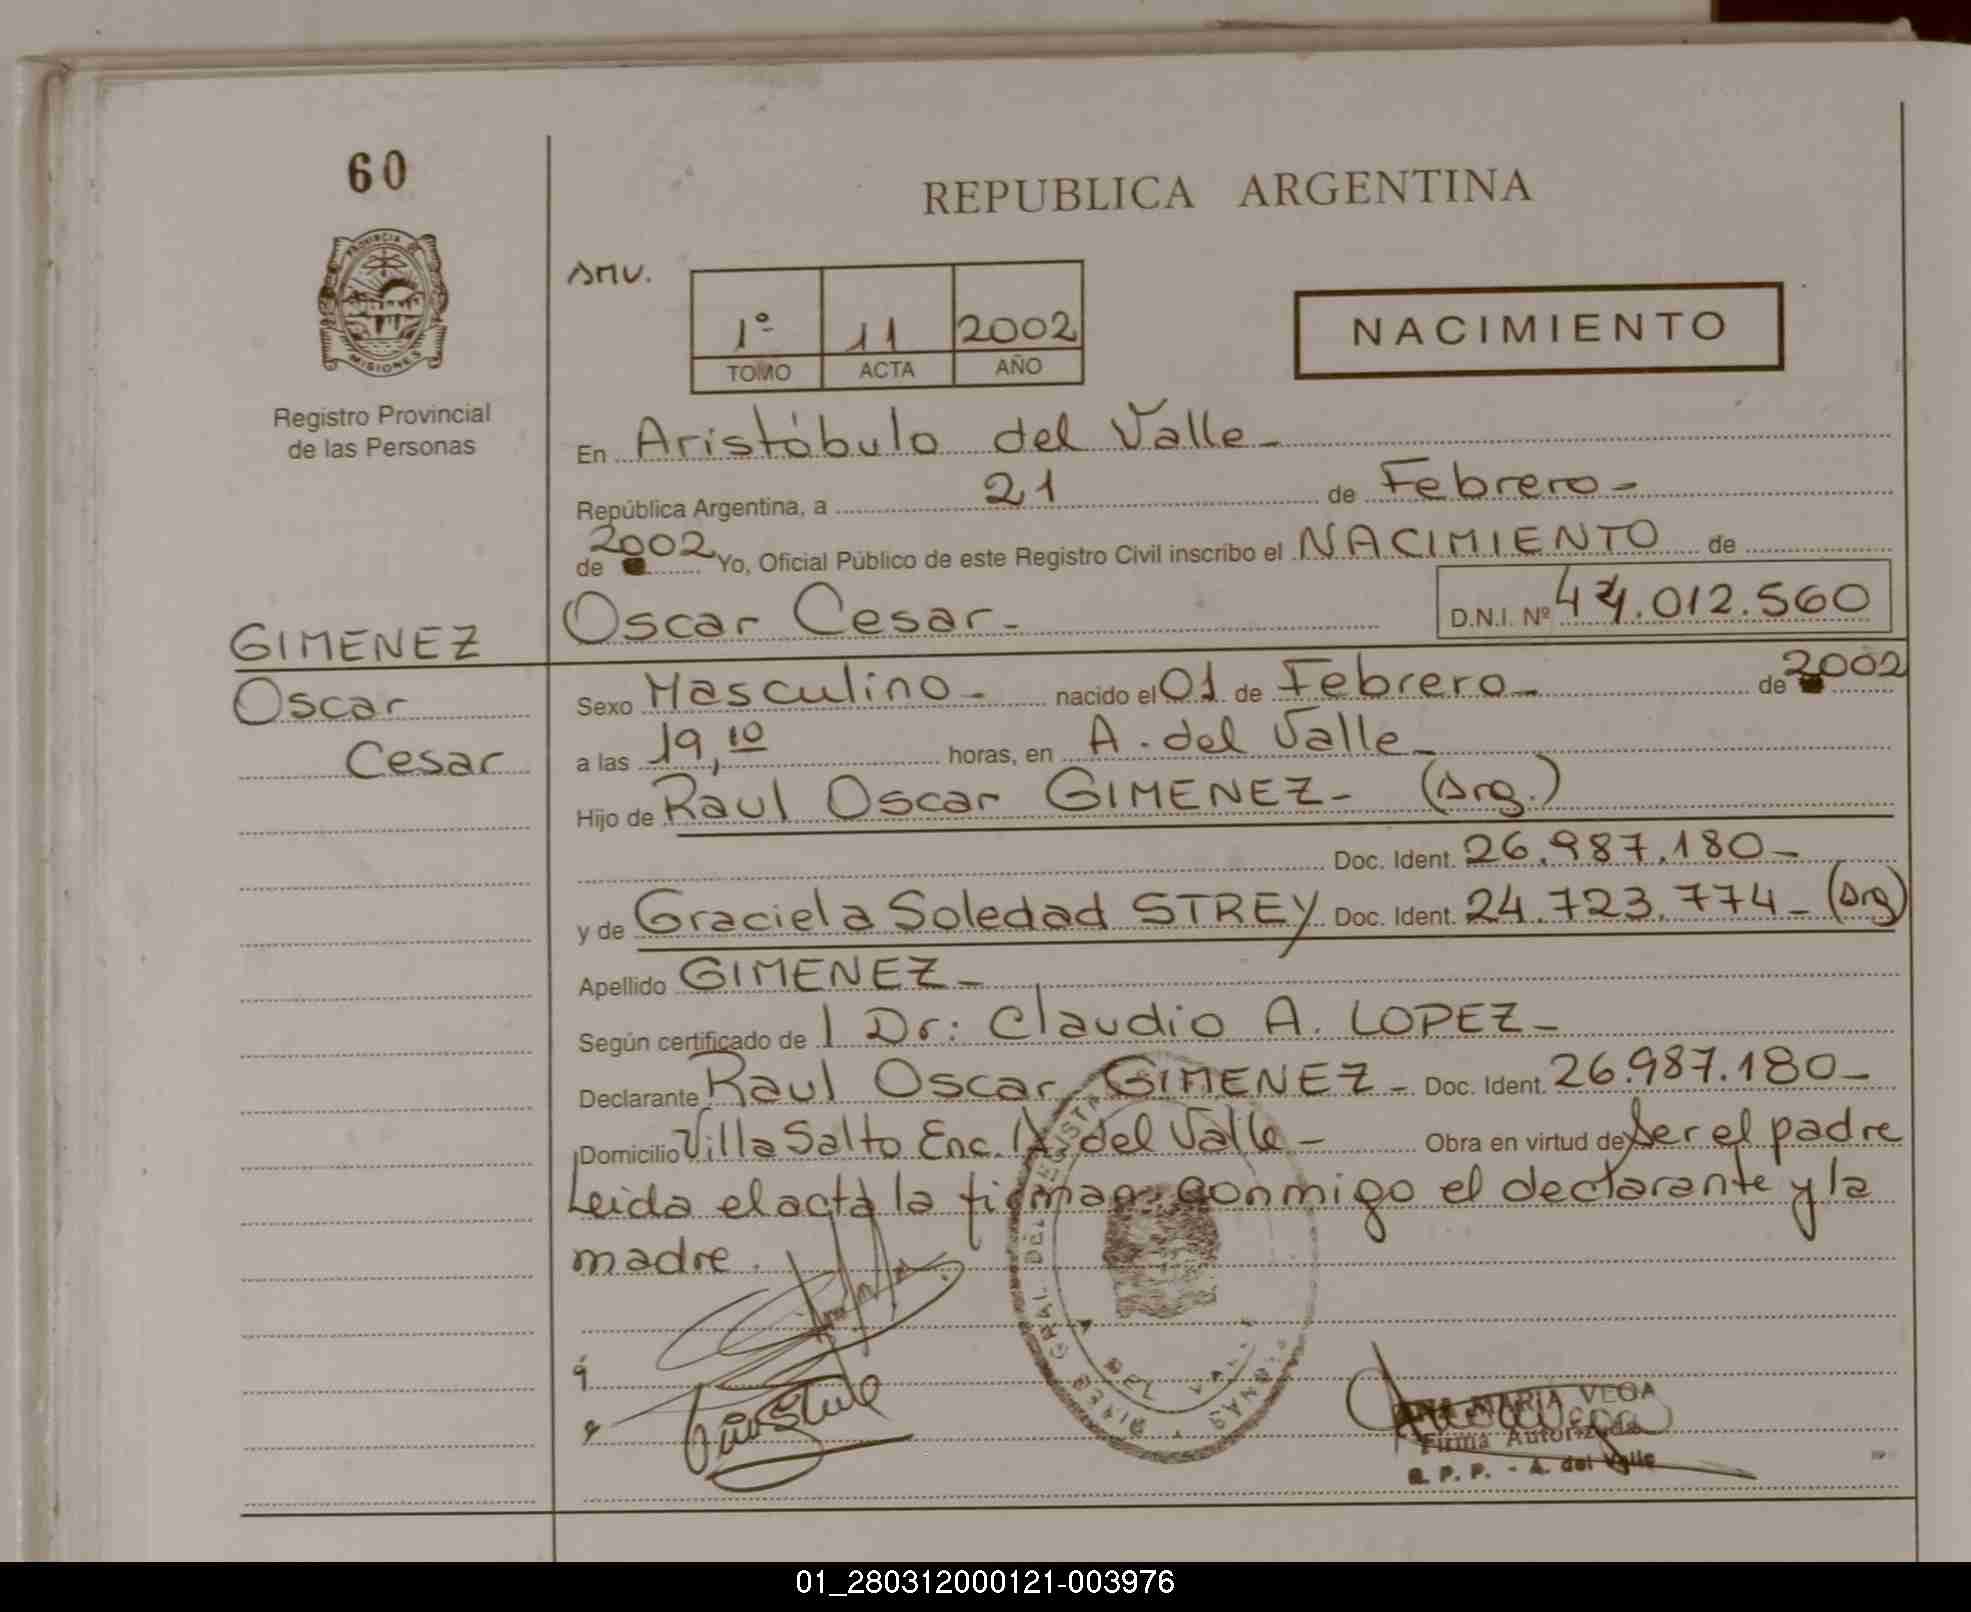 60
REPUBLICA ARGENTINA
PROVINCIA DE
MISIONES
Registro Provincial
de las Personas
SMV.
1º 11 2002
TOMO ACTA AÑO
NACIMIENTO
En Aristóbulo del Valle-
República Argentina, a 21 de Febrero-
de 2002 Yo, Oficial Público de este Registro Civil inscribo el NACIMIENTO de
Oscar Cesar- D.N.I. Nº 44.012.560
GIMENEZ
Oscar
Cesar
Sexo Masculino- nacido el 01 de Febrero- de 2002
a las 19,10 horas, en A. del Valle-
Hijo de Raul Oscar GIMENEZ- (Arg.)
Doc. Ident. 26.987.180-
y de Graciela Soledad STREY Doc. Ident. 24.723.774- (Arg)
Apellido GIMENEZ-
Según certificado de l Dr: Claudio A. LOPEZ-
Declarante Raul Oscar GIMENEZ- Doc. Ident. 26.987.180-
Domicilio Villa Salto Enc. A. del Valle- Obra en virtud de Ser el padre
Leida el acta la firman conmigo el declarante y la
madre.
ANA MARIA VEGA
Firma Autorizada
R. P. P. - A. del Valle
01_280312000121-003976